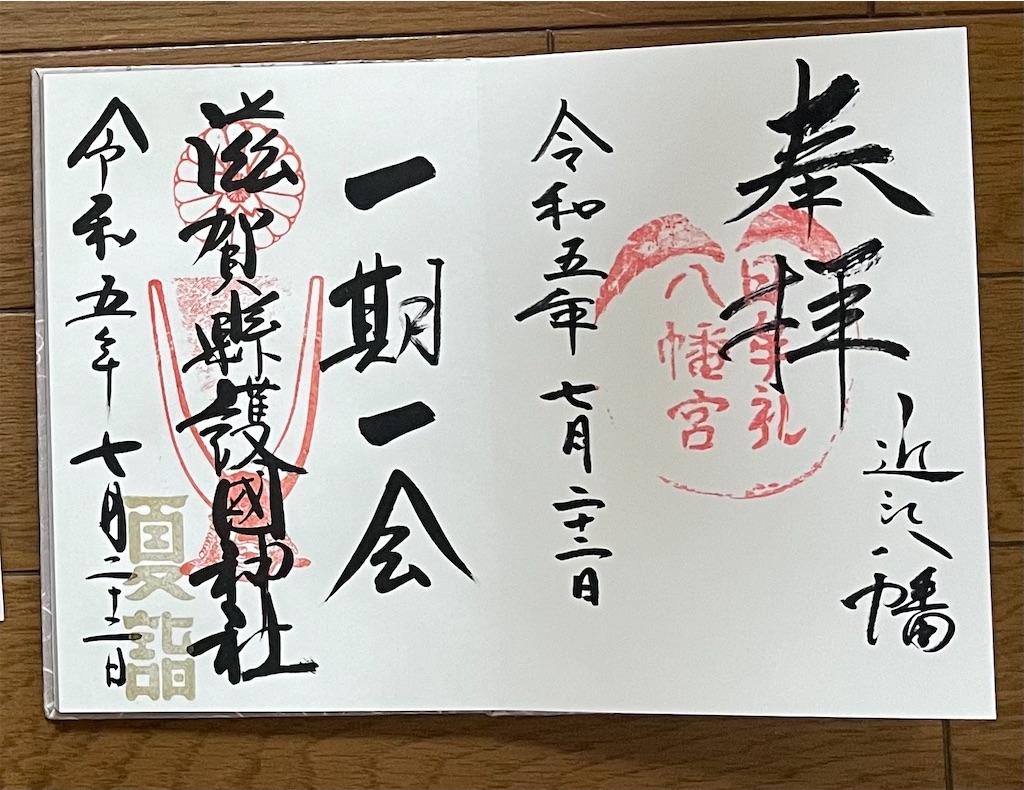 奉拝
近江八幡
日牟礼
八幡宮
令和五年 七月二十二日
一期一会
滋賀縣護國神社
令和五年 七月二十二日
夏詣